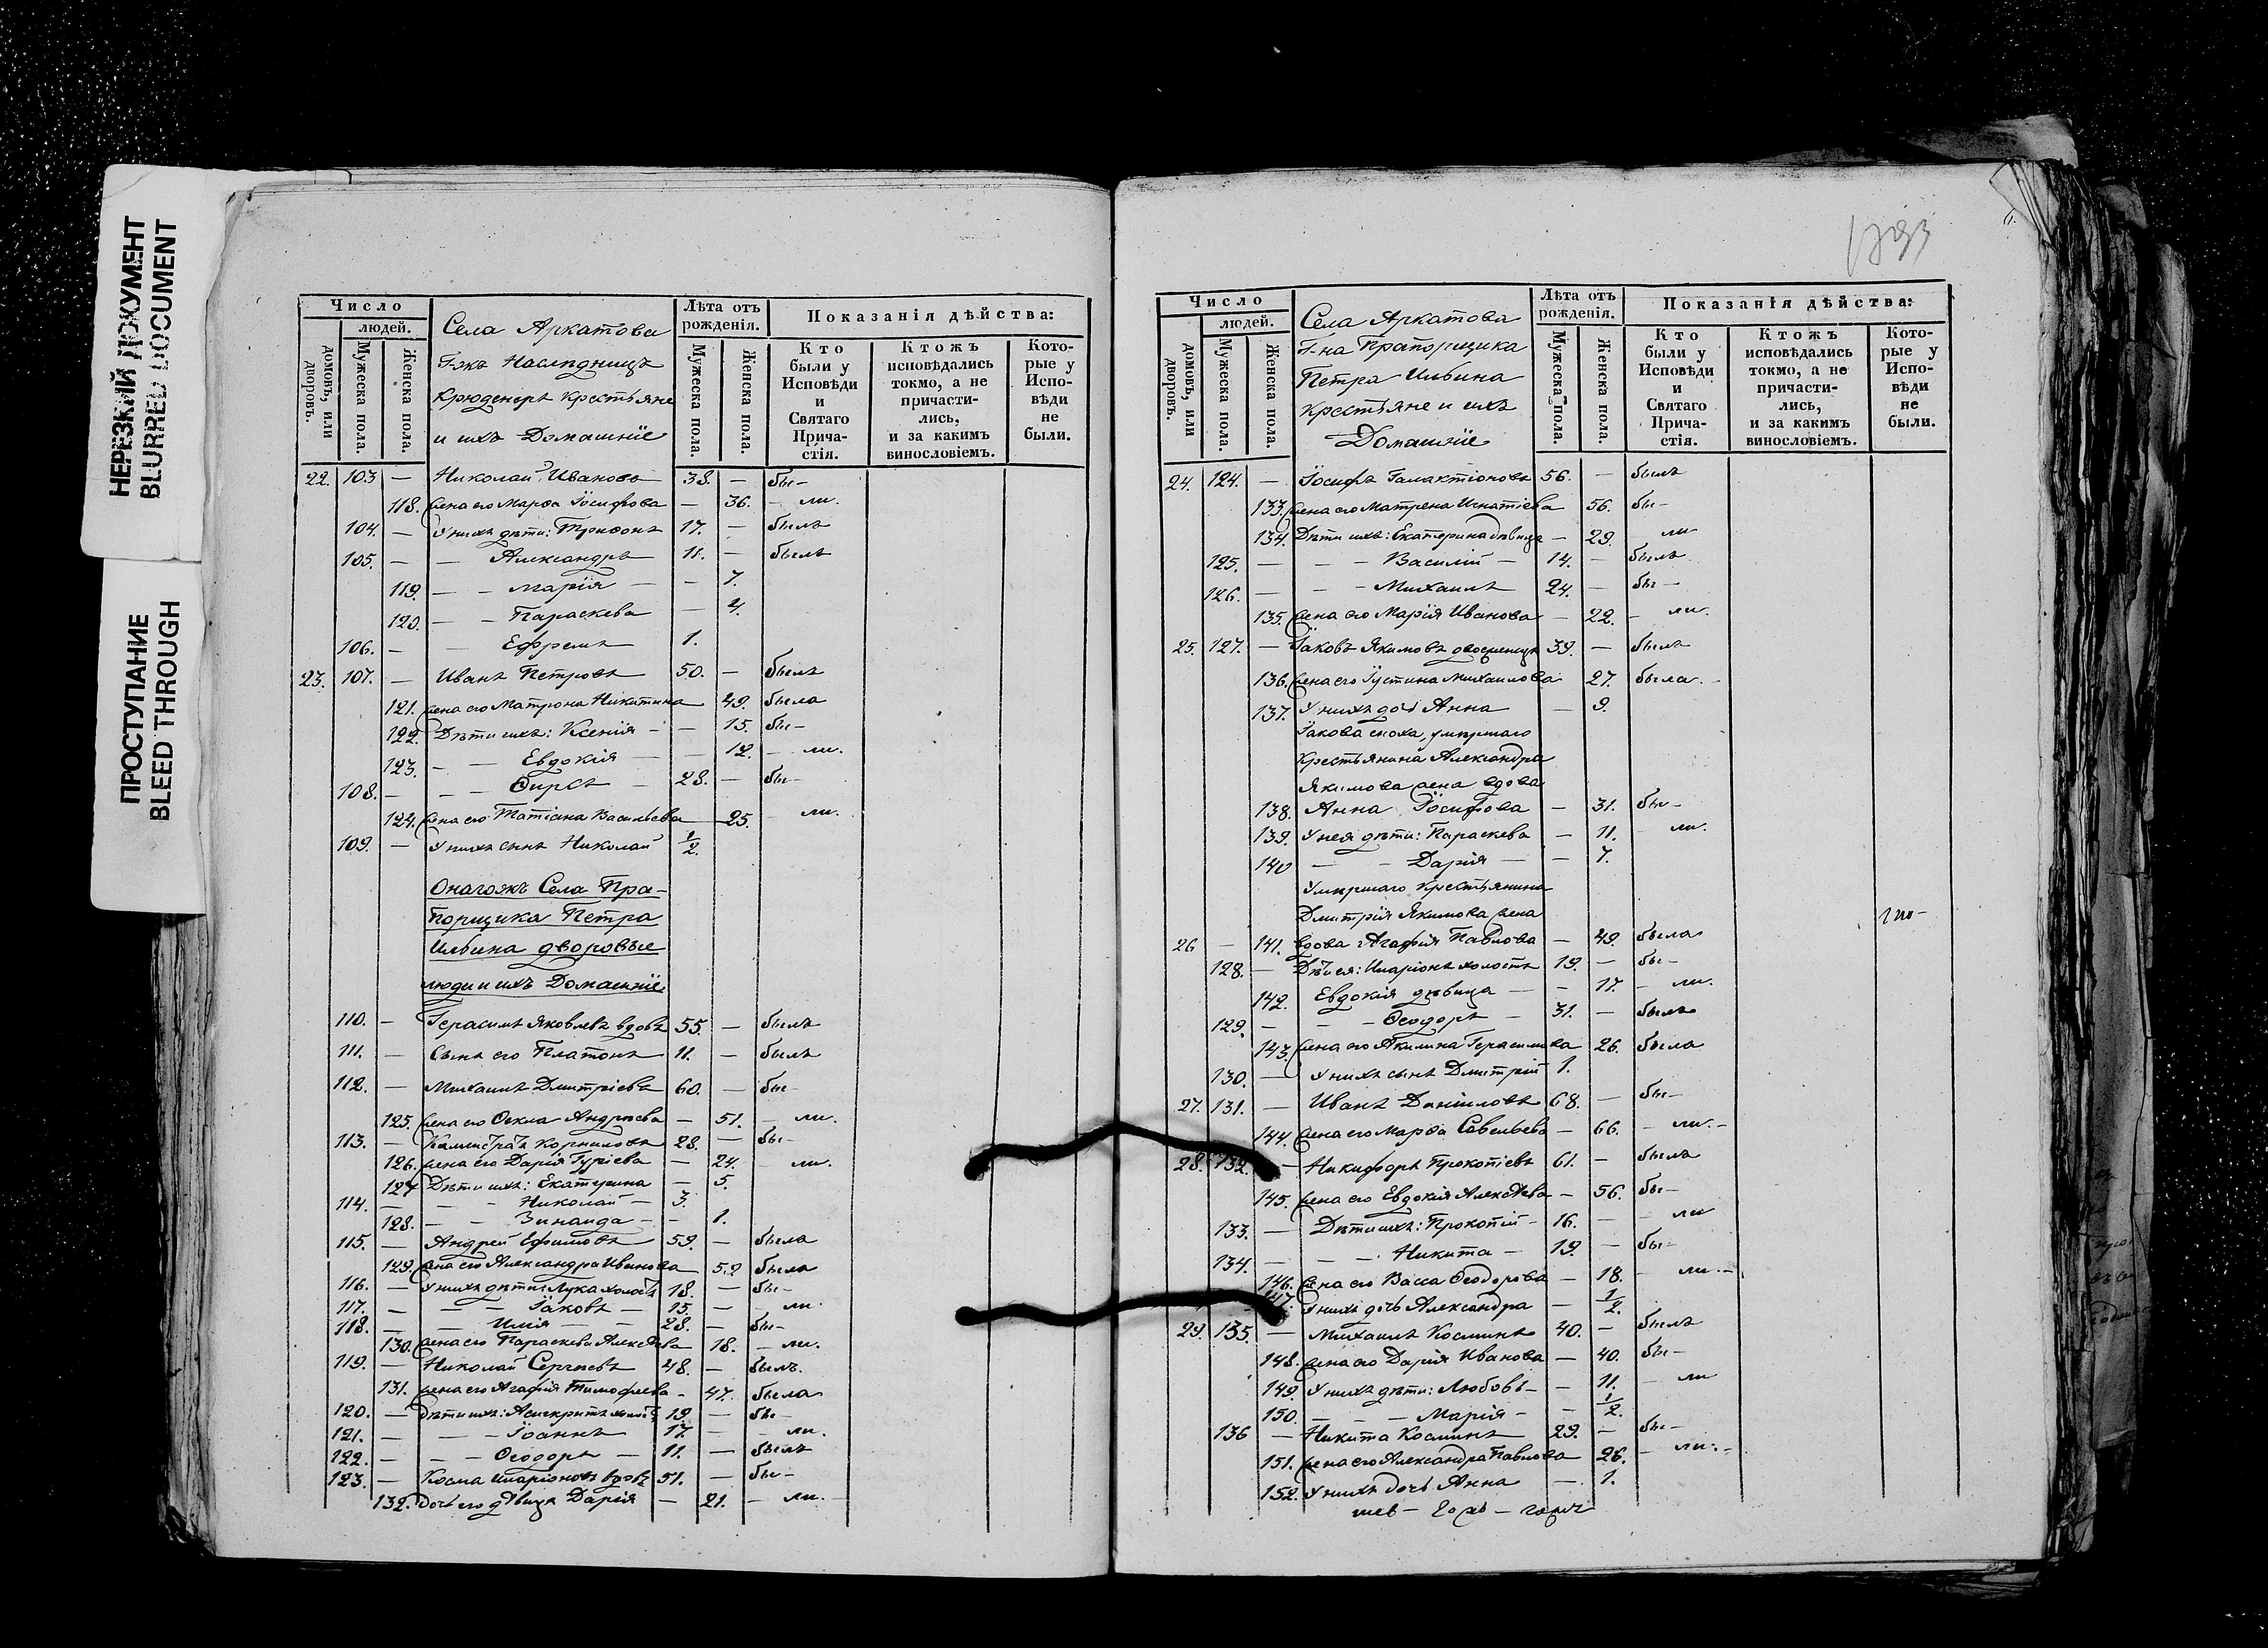 НЕРЕЗКИЙ ДОКУМЕНТ
BLURRED DOCUMENT
ПРОСТУПАНИЕ
BLEED THROUGH
Число
людей.
домовъ, или дворовъ.
Мужеска пола.
Женска пола.
Села Аркатова
Г-жъ Наслѣдницъ
Крюденеръ Крестьяне
и ихъ Домашніе
Лѣта отъ рожденія.
Мужеска пола.
Женска пола.
Показанія дѣйства:
Кто были у Исповѣди и Святаго Причастія.
Ктожъ исповѣдались токмо, а не причастились, и за какимъ винословіемъ.
Которые у Исповѣди не были.
22. 103 — Николай Ивановъ 38. — бы-
118. жена его Марѳа Іосифова — 36. — ли.
104. — У нихъ дѣти: Трифонъ 17. — былъ
105. — — Александръ 11. — былъ
119. — — Марія — — 7.
120. — — Параскева — 4.
106. — Ефремъ 1.
23. 107. — Иванъ Петровъ 50. — былъ
121. жена его Матрона Никитина 49. была
122. Дѣти ихъ: Ксенія — — 15. бы-
123. — — Евдокія — — 12. — ли.
108. — — — Ѳирсъ — 28. — бы-
124. жена его Татіана Васильева — 25. ли.
109. — У нихъ сынъ Николай 1/2
Онагожъ Села Пра-
порщика Петра
Ильина дворовые
люди и ихъ Домашніе
110. — Герасимъ Яковлевъ вдовъ 55. — былъ
111. — Сынъ его Платонъ 11. — былъ
112. — Михаилъ Дмитріевъ 60. — бы-
125. жена его Ѳекла Андреева — 51. — ли.
113. — Калистратъ Корниловъ 28. — бы-
126. жена его Дарія Гуріева — 24. ли.
127 Дѣти ихъ: Екатерина — 5.
114. — — — Николай — 3.
128. — — Зинаида — — 1.
115. — Андрей Ефимовъ 59. — была
129. жена его Александра Иванова 52 была
116. — У нихъ дѣти: Лука холостъ 18. — бы-
117. — — — Іаковъ — 15. — — ли.
118. — — Илія — — 28. — бы-
130. жена его Параскева Алексѣева 18. — ли.
119. — Николай Сергѣевъ 48. — былъ.
131. жена его Агафія Тимофеева — 47. была
120. — Дѣти ихъ: Асигкритъ холостъ 19 — бы-
121. — — — Іоаннъ 17. — — ли.
122. — — — Ѳеодоръ — 11. — былъ
123. — Косма Иларіоновъ вдовъ 51. — бы-
132. дочь его дѣвица Дарія — 21. — ли. —
Число
людей.
домовъ, или дворовъ.
Мужеска пола.
Женска пола.
Села Аркатова
Г-на Прапорщика
Петра Ильина
Крестьяне и ихъ
Домашніе
Лѣта отъ рожденія.
Мужеска пола.
Женска пола.
Показанія дѣйства:
Кто были у Исповѣди и Святаго Причастія.
Ктожъ исповѣдались токмо, а не причастились, и за какимъ винословіемъ.
Которые у Исповѣди не были.
24. 124. — Іосифъ Галактіоновъ 56. — былъ
133. жена его Матрена Игнатіева 56. бы-
134. Дѣти ихъ: Екатерина дѣвица — 29. ли
125. — — — Василій — 14. — былъ
126. — — — Михаилъ 24. — бы-
135. жена его Марія Иванова — 22. — ли.
25. 127. — Іаковъ Якимовъ 39. — былъ
136. жена его Іустина Михаилова 27. была. —
137. У нихъ дочь Анна — 9.
Іакова сноха, умершаго
Крестьянина Александра
Якимова жена вдова
138. Анна Іосифова — 31. бы-
139. У нея дѣти: Параскева — 11. — ли.
140 — — Дарія — — 7.
Умершаго Крестьянина
Дмитрія Якимова жена
26 — 141. вдова Агафія Павлова — 49. была
128. — Дѣти ея: Иларіонъ холостъ 19. — бы-
142. Евдокія дѣвица — — 17. — ли.
129. — — — Ѳеодоръ — 31. — былъ
143. жена его Акилина Герасимова 26. была
130. — У нихъ сынъ Дмитрій 1.
27. 131. — Иванъ Даніиловъ 68. — бы-
144. жена его Марѳа Савельева — 66. — ли. —
28. 132. — Никифоръ Прокопіевъ 61. — былъ
145. жена его Евдокія Алексѣева — 56. бы-
133. — Дѣти ихъ: Прокопій — 16. — — ли
134. — — — Никита — 19. — бы-
146. жена его Васса Ѳеодорова — 18. — ли. —
147. У нихъ дочь Александра — 1/2.
29. 135. — Михаилъ Косминъ 40. — былъ
148. жена его Дарія Иванова — 40. бы-
149. У нихъ дѣти: Любовь — — 11. — ли
150. — — — Марія — — 1/2.
136 — Никита Косминъ 29. — бы-
151. жена его Александра Павлова 26. — ли. —
152. У нихъ дочь Анна — 1.